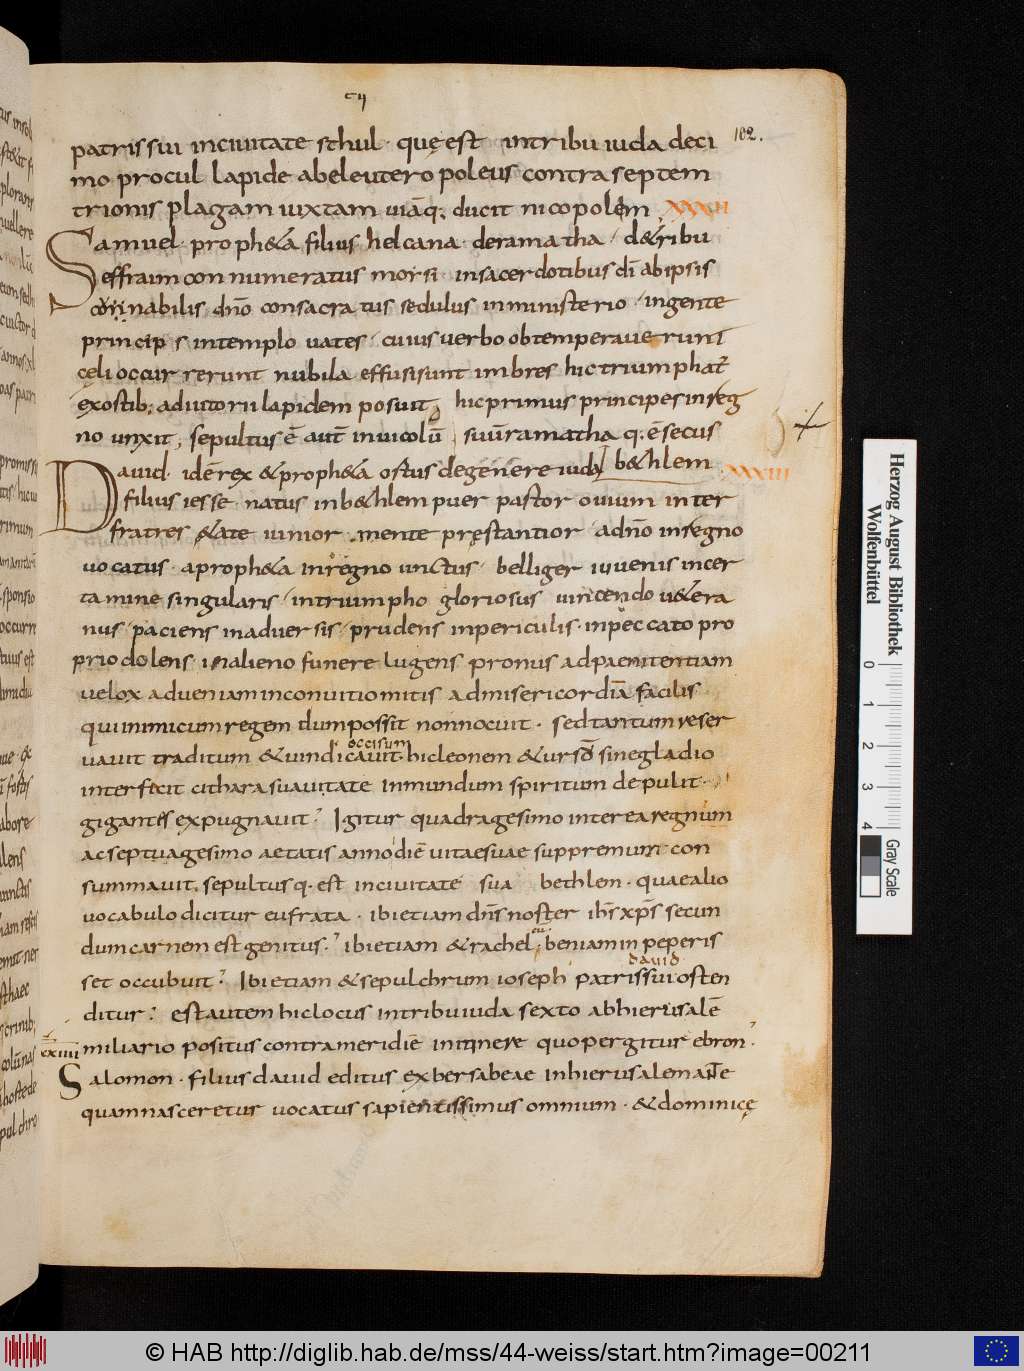 cij
102.
patris sui in ciuitate sthul · quę est in tribu iuda deci
mo procul lapide ab eleutero poleus contra septem
trionis plagam iuxtam uiāq; ducit nicopolem XXXII
Samuel · proph&a filius helcana · de ramatha · d&ribu
effraim connumeratus morsi in sacerdotibus di ab ipsis
nabilis dño consacratus sedulus in ministerio ingente
princip s in templo uates · cuius uerbo obtemperauerunt
cęli occurrerunt nubila effusi sunt imbres hic triumphat
ex ostib; adiutorii lapidem posuit, hic primus principes in reg
no unxit, sepultus ē aut in uicolū suū ramatha q. ē secus
b&hlem XXXIII
Dauid · idē rex & proph&a ostus de genere iuda
filius iesse natus in b&hlem puer pastor ouium inter
fratres &ate iunior mente pręstantior ad dño in regno
uocatus · a proph&a in regno unctus · belliger iuuenis in cer
tamine singularis in triumpho gloriosus uincendo u&era
nus paciens in aduersis prudens in periculis · in peccato pro
prio dolens in alieno funere lugens pronus ad paenitentiam
uelox ad ueniam in conuitio mitis ad misericordiā facilis
qui inimicum regem dum possit non nocuit · sed tantum reser
occisum
uauit traditum & uindicauit · hic leonem & ursō sine gladio
interfecit cithara suauitate inmundum spiritum depulit ·
gigantes expugnauit? Igitur quadragesimo interea regnum
ac septuagesimo aetatis anno diē uitae suae suppremum con
summauit, sepultus q. est in ciuitate sua bethlem · quae alio
uocabulo dicitur eufrata · ibi etiam dñs noster ihs xps secun
dum carnem est genitus? ibi etiam & rachel · beniamin peperis
dauid
set occubuit? Ibi etiam & sepulchrum ioseph patris sui osten
ditur? est autem hic locus in tribu iuda sexto ab hierusalē
miliario positus contra meridiē in itinere quo pergitur ebron ·
xxiiii
Salomon · filius dauid editus ex bersabeae in hierusalem
quam nasceretur uocatus sapientissimus omnium · & dominicę
Herzog August Bibliothek
Wolfenbüttel
0 1 2 3 4
Gray Scale
© HAB http://diglib.hab.de/mss/44-weiss/start.htm?image=00211